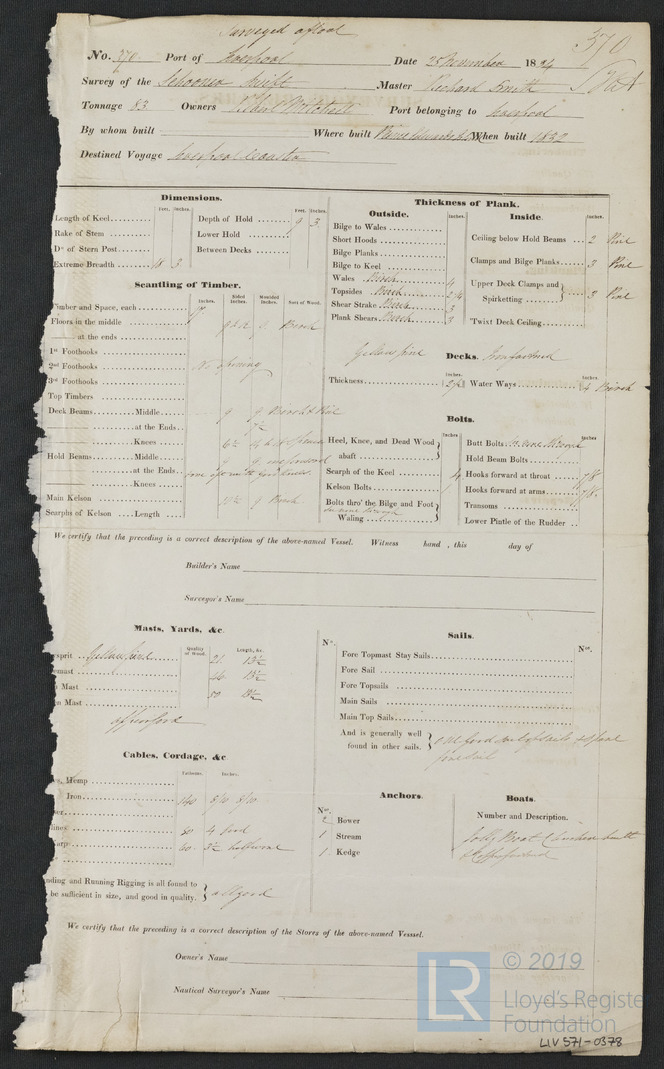 Surveyed afloat
370
No. 370. Port of Liverpool Date 25 November 1834
Survey of the Schooner Swift Master Richard Smith
Tonnage 83 Owners Port belonging to Liverpool
By whom built Where built Prince Edwards Isld When built 1832
Destined Voyage Liverpool Coaster
Dimensions.
Feet. Inches. Feet. Inches.
Length of Keel
Rake of Stem
Do of Stern Post
Extreme Breadth 18 3
Depth of Hold 9 3
Lower Hold
Between Decks
Scantling of Timber.
Inches. Sided Inches. Moulded Inches. Sort of Wood.
Timber and Space, each
Floors in the middle Birch
at the ends
1st Foothooks
2nd Foothooks No opening
3rd Foothooks
Top Timbers
Deck Beams Middle 9 9 Birch & Pine
at the Ends
Knees
Hold Beams Middle
at the Ends
Knees
Main Kelson 9 Birch
Scarphs of Kelson Length
Thickness of Plank.
Outside. Inches.
Bilge to Wales
Short Hoods
Bilge Planks
Bilge to Keel
Wales Birch 4
Topsides Birch 2 1/4
Shear Strake Birch 3
Plank Shears Birch 3
Inside. Inches.
Ceiling below Hold Beams 2 Pine
Clamps and Bilge Planks 3 Pine
Upper Deck Clamps and Spirketting 3 Pine
'Twixt Deck Ceiling
Yellow Pine Decks. Iron fastened
Inches. Inches.
Thickness 2 1/2 Water Ways 4 Birch
Bolts.
Inches Inches
Heel, Knee, and Dead Wood abaft
Scarph of the Keel
Kelson Bolts 1
Bolts thro' the Bilge and Foot Waling
In none through
Butt Bolts In none through
Hold Beam Bolts
Hooks forward at throat 7/8
Hooks forward at arms 7/8
Transoms
Lower Pintle of the Rudder
We certify that the preceding is a correct description of the above-named Vessel. Witness hand , this day of
Builder's Name
Surveyor's Name
Masts, Yards, &c.
Quality of Wood. Length, &c.
sprit Yellow pine 21 13 1/2
mast 46 13 1/2
Mast 50 13 1/2
n Mast
Sails.
No. Nos.
Fore Topmast Stay Sails
Fore Sail
Fore Topsails
Main Sails
Main Top Sails
And is generally well found in other sails. one good suit of sails & spare
fore sail
Cables, Cordage, &c.
Fathoms. Inches.
s, Hemp
Iron 140 8/10 8/10
50 4 good
60 3 1/2 half worn
Anchors.
Nos.
2 Bower
1 Stream
1 Kedge
Boats.
Number and Description.
Jolly Boat Clincher built
nding and Running Rigging is all found to
be sufficient in size, and good in quality. all good
We certify that the preceding is a correct description of the Stores of the above-named Vessel.
Owner's Name
Nautical Surveyor's Name
LR
© 2019
Lloyd's Registe
Foundation
LIV 571-0378